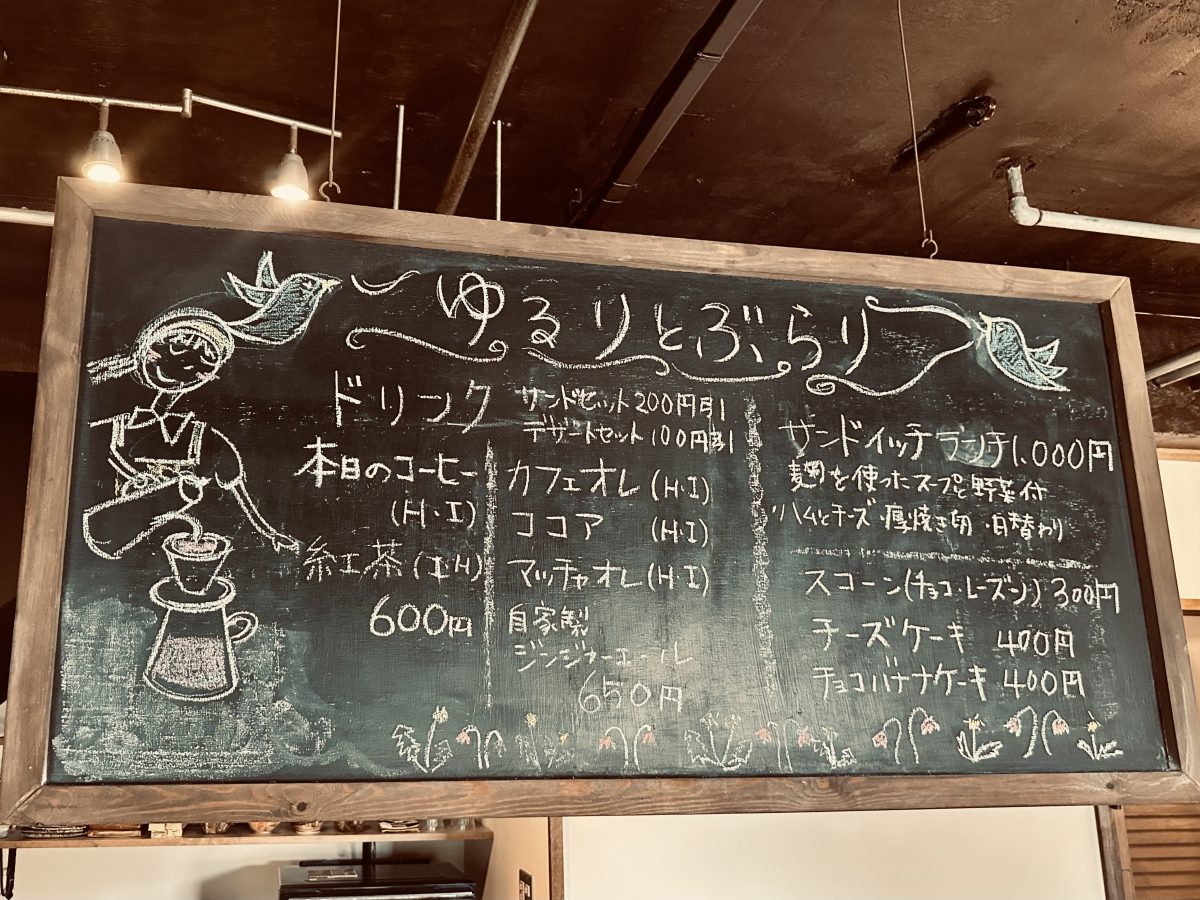 ゆるりとぶらり
ドリンク
サンドセット200円引
デザートセット100円引
本日のコーヒー
(H・I)
紅茶(I・H)
600円
カフェオレ(H・I)
ココア (H・I)
マッチャオレ(H・I)
自家製
ジンジャーエール
650円
サンドイッチランチ1,000円
麹を使ったスープと野菜付
ハムとチーズ・厚焼き卵・日替わり
スコーン(チョコ・レーズン)300円
チーズケーキ 400円
チョコバナナケーキ 400円